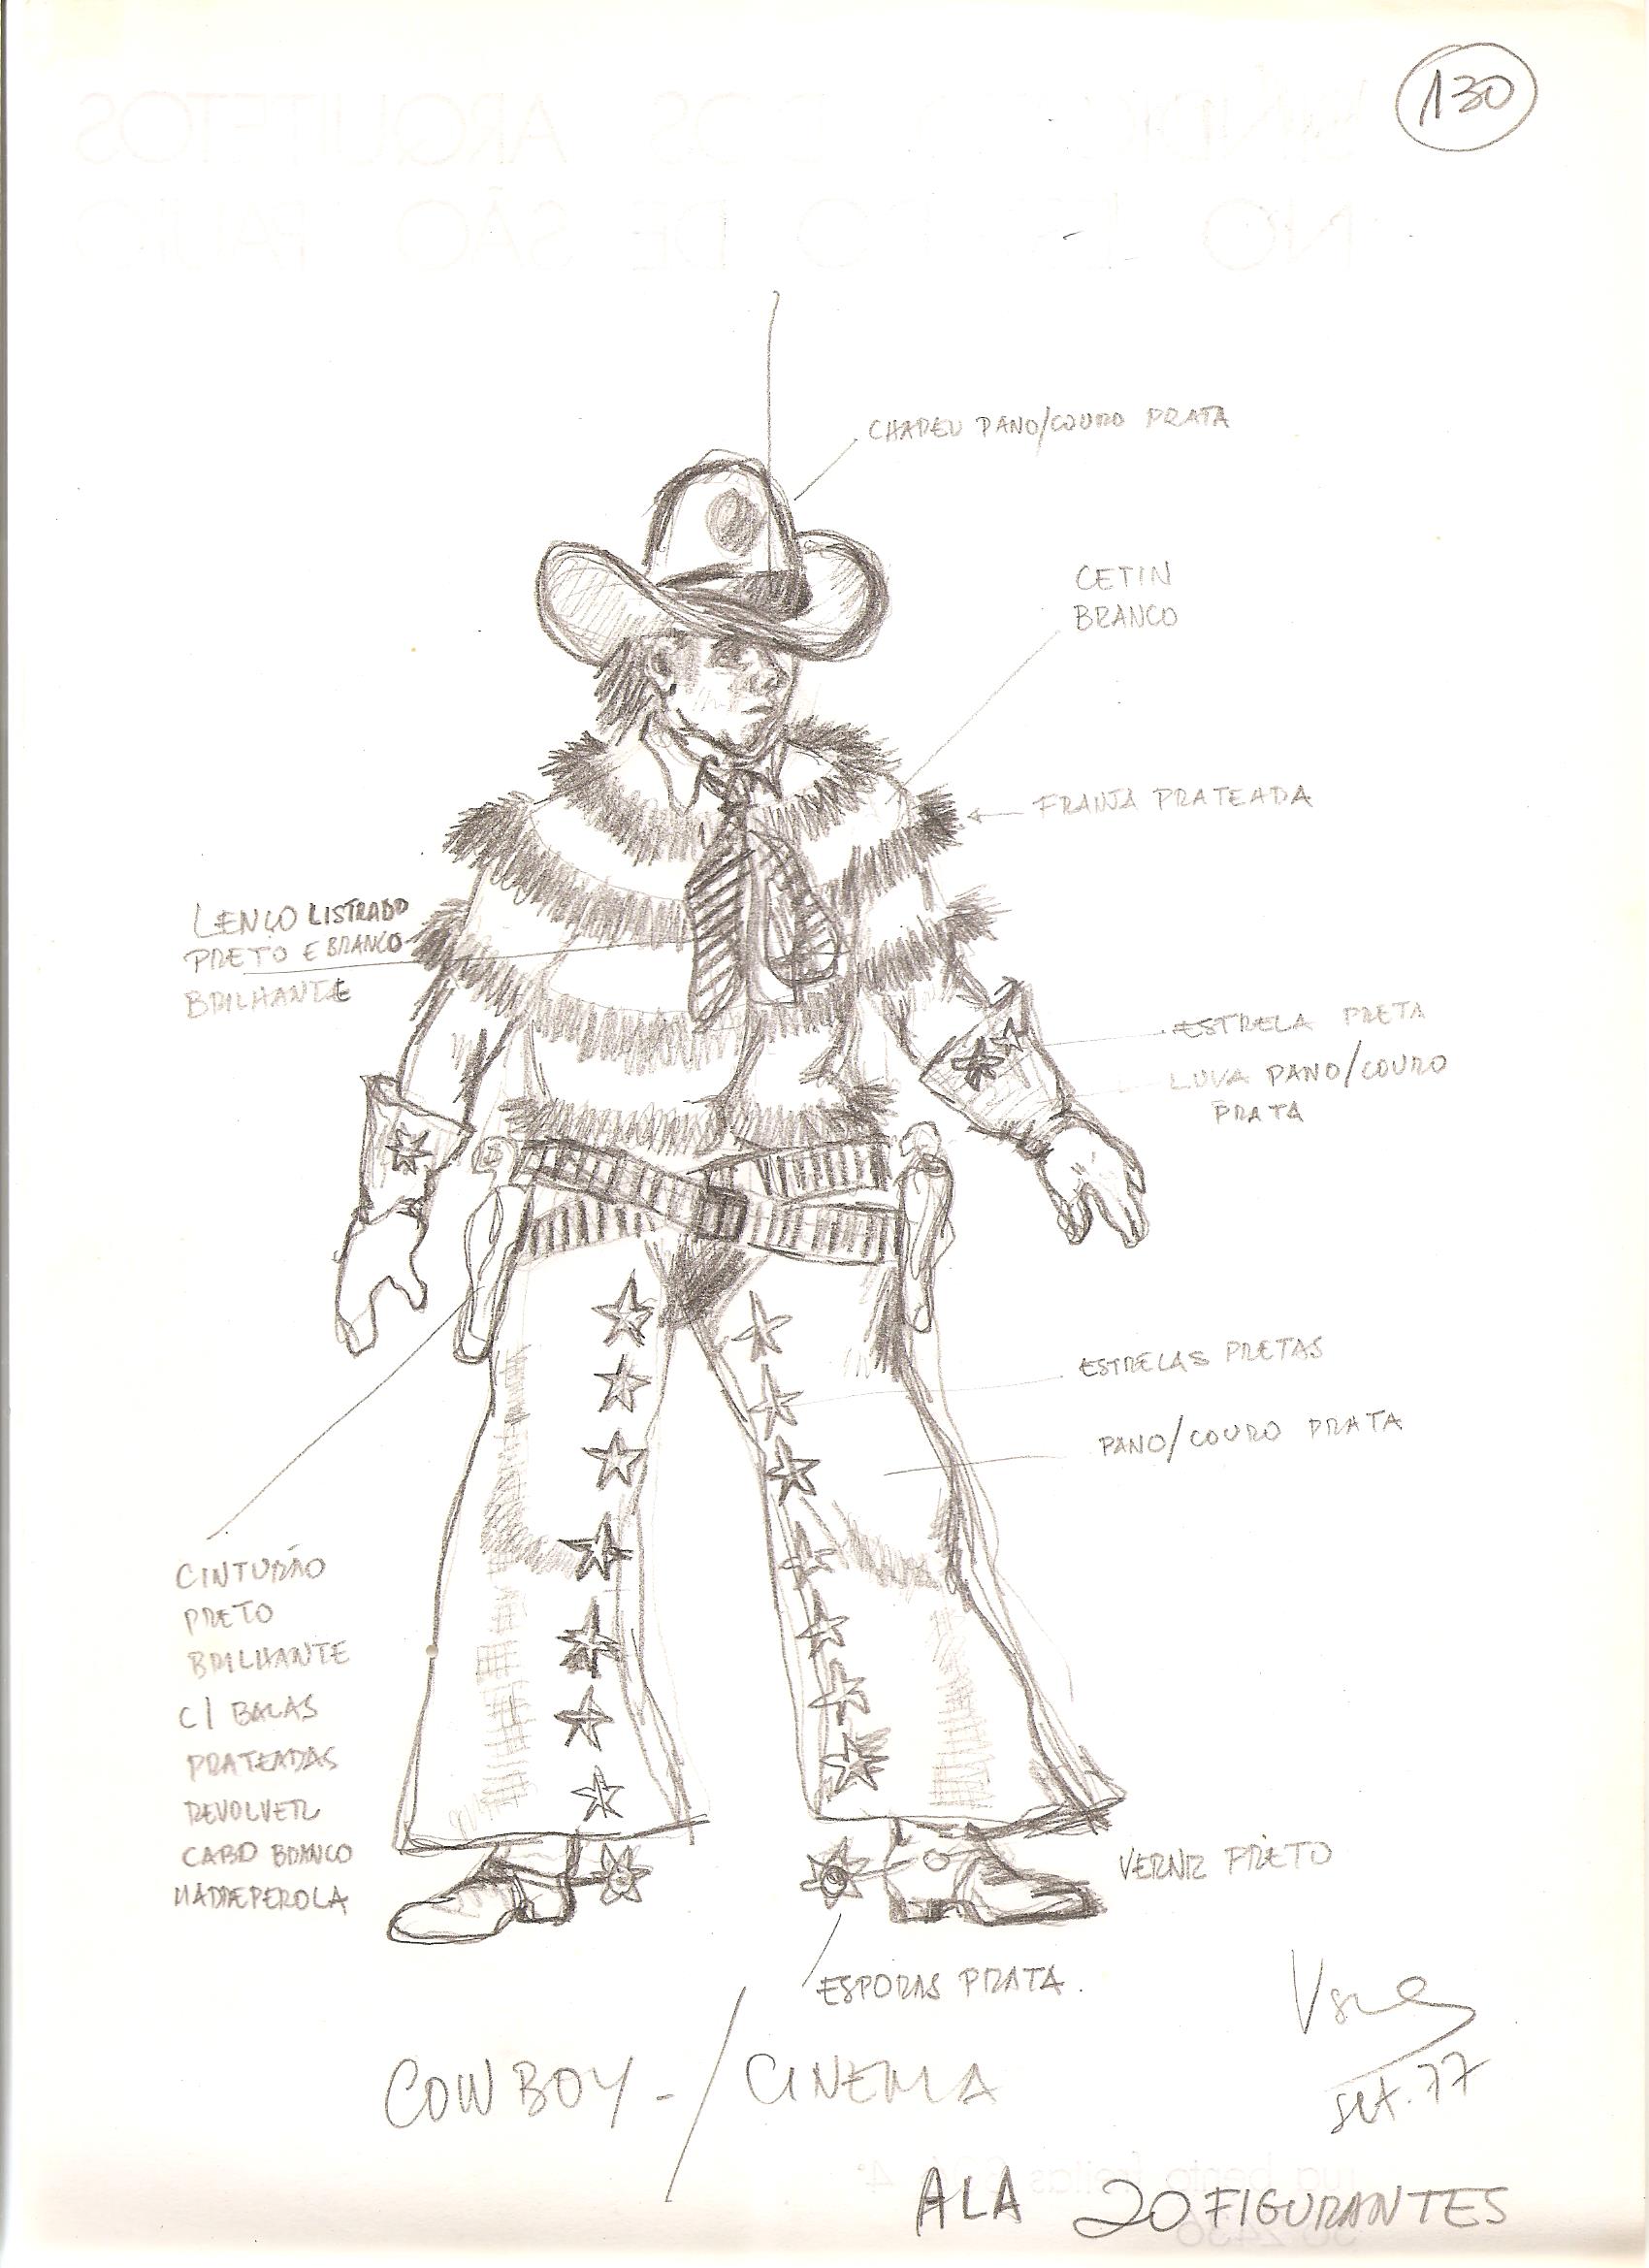 130
CHAPEU PANO/COURO PRATA
CETIN
BRANCO
FRANJA PRATEADA
LENÇO LISTRADO
PRETO E BRANCO
BRILHANTE
ESTRELA PRETA
LUVA PANO/COURO
PRATA
ESTRELAS PRETAS
PANO/COURO PRATA
CINTURÃO
PRETO
BRILHANTE
C/ BALAS
PRATEADAS
REVOLVER
CABO BRANCO
MADREPEROLA
VERNIZ PRETO
ESPORAS PRATA.
COWBOY - / CINEMA
set. 77
ALA 20 FIGURANTES
ARQUITETOS
NO ESTADO DE SÃO PAULO
rua bento freitas 4º